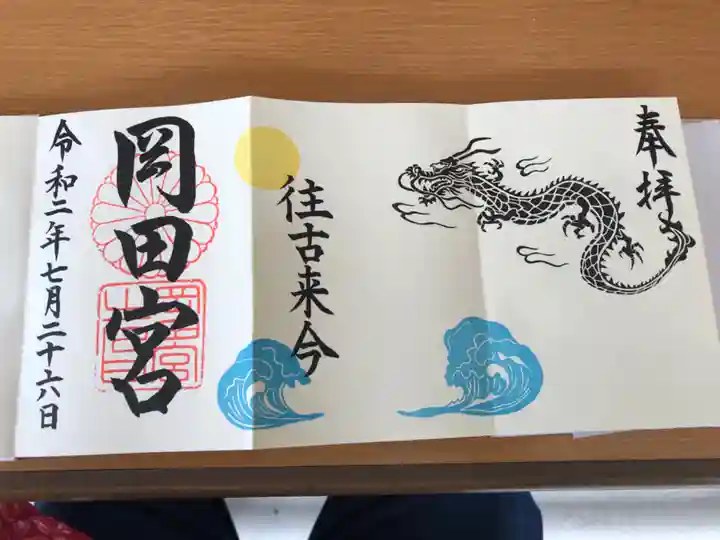 奉拝
往古来今
岡田宮
令和二年七月二十六日